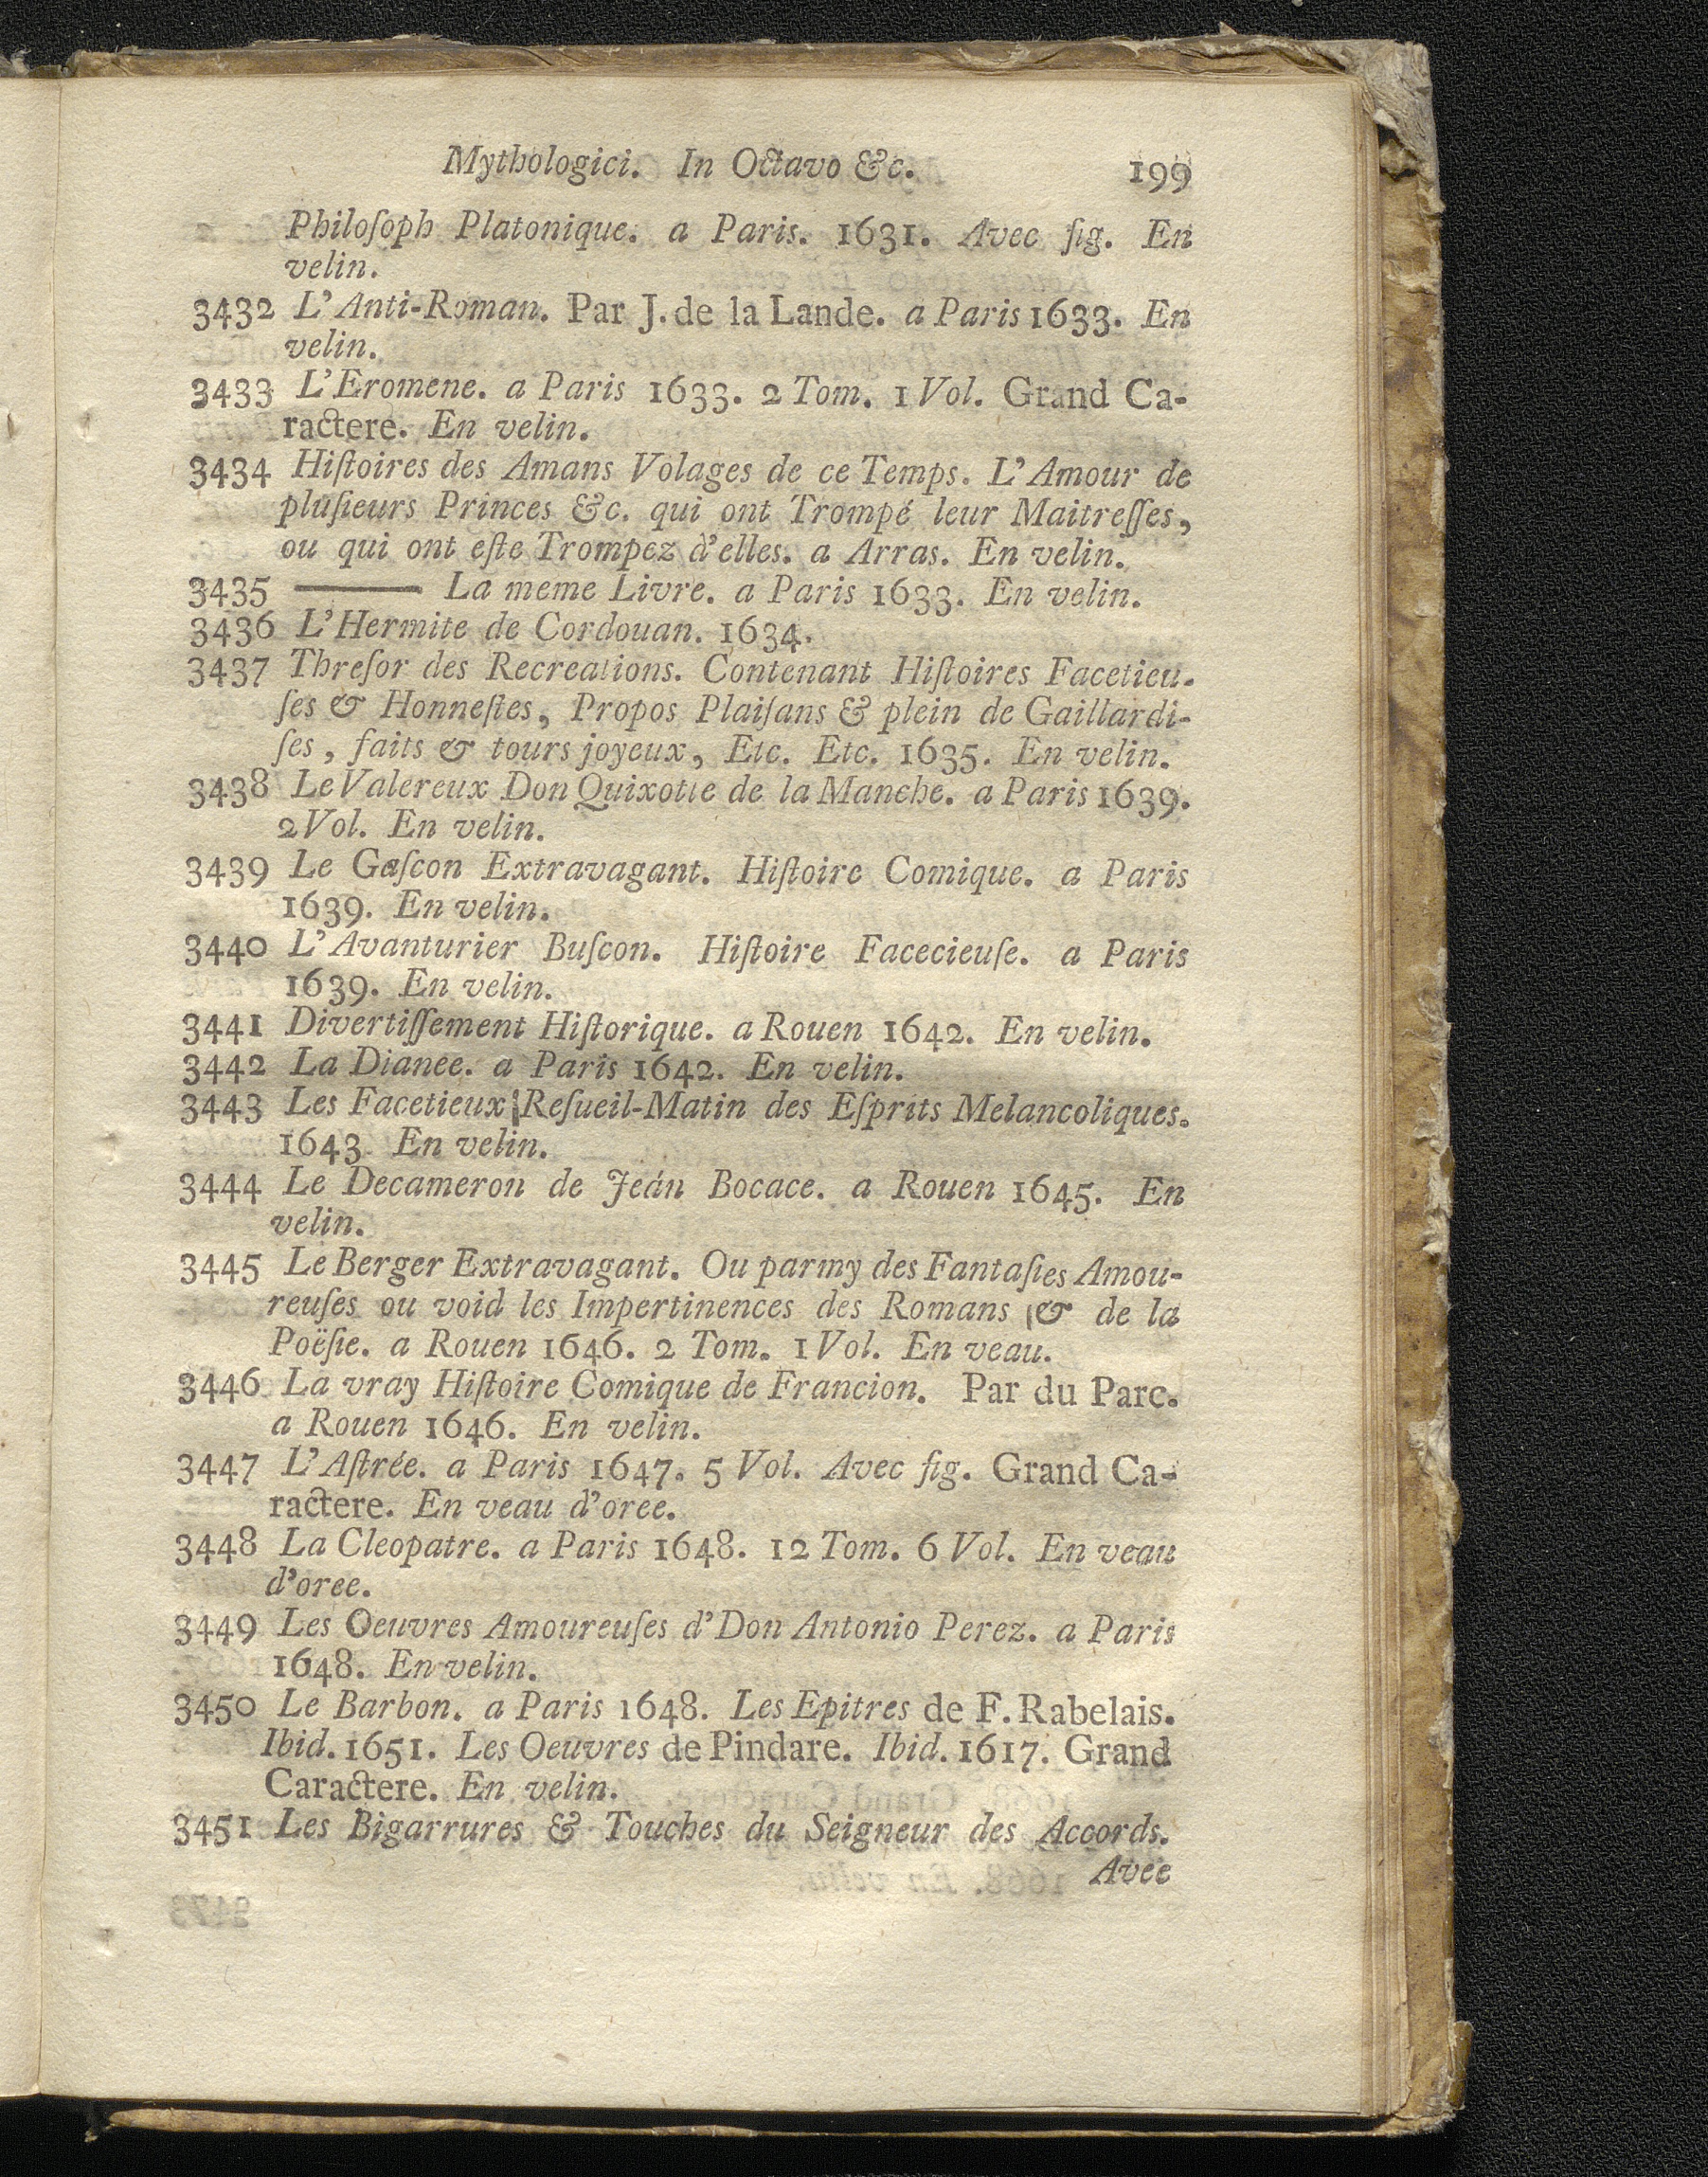 Mythologici. In Octavo &c. 199
Philoſoph Platonique. a Paris. 1631. Avec fig. En
velin.
3432 L'Anti-Roman. Par J. de la Lande. a Paris 1633. En
velin.
3433 L'Eromene. a Paris 1633. 2 Tom. 1 Vol. Grand Ca-
ractere. En velin.
3434 Hiſtoires des Amans Volages de ce Temps. L'Amour de
pluſieurs Princes &c. qui ont Trompé leur Maitreſſes,
ou qui ont eſte Trompez d'elles. a Arras. En velin.
3435 ——— La meme Livre. a Paris 1633. En velin.
3436 L'Hermite de Cordouan. 1634.
3437 Threſor des Recreations. Contenant Hiſtoires Facetieu-
ſes & Honneſtes, Propos Plaiſans & plein de Gaillardi-
ſes, faits & tours joyeux, Etc. Etc. 1635. En velin.
3438 Le Valereux Don Quixotte de la Manche. a Paris 1639.
2 Vol. En velin.
3439 Le Gaſcon Extravagant. Hiſtoire Comique. a Paris
1639. En velin.
3440 L'Avanturier Buſcon. Hiſtoire Facecieuſe. a Paris
1639. En velin.
3441 Divertiſſement Hiſtorique. a Rouen 1642. En velin.
3442 La Dianee. a Paris 1642. En velin.
3443 Les Facetieux Reſueil-Matin des Eſprits Melancoliques.
1643. En velin.
3444 Le Decameron de Jeán Bocace. a Rouen 1645. En
velin.
3445 Le Berger Extravagant. Ou parmy des Fantaſies Amou-
reuſes ou void les Impertinences des Romans & de la
Poëſie. a Rouen 1646. 2 Tom. 1 Vol. En veau.
3446 La vray Hiſtoire Comique de Francion. Par du Parc.
a Rouen 1646. En velin.
3447 L'Aſtrée. a Paris 1647. 5 Vol. Avec fig. Grand Ca-
ractere. En veau d'oree.
3448 La Cleopatre. a Paris 1648. 12 Tom. 6 Vol. En veau
d'oree.
3449 Les Oeuvres Amoureuſes d'Don Antonio Perez. a Paris
1648. En velin.
3450 Le Barbon. a Paris 1648. Les Epitres de F. Rabelais.
Ibid. 1651. Les Oeuvres de Pindare. Ibid. 1617. Grand
Caractere. En velin.
3451 Les Bigarrures & Touches du Seigneur des Accords.
Avec